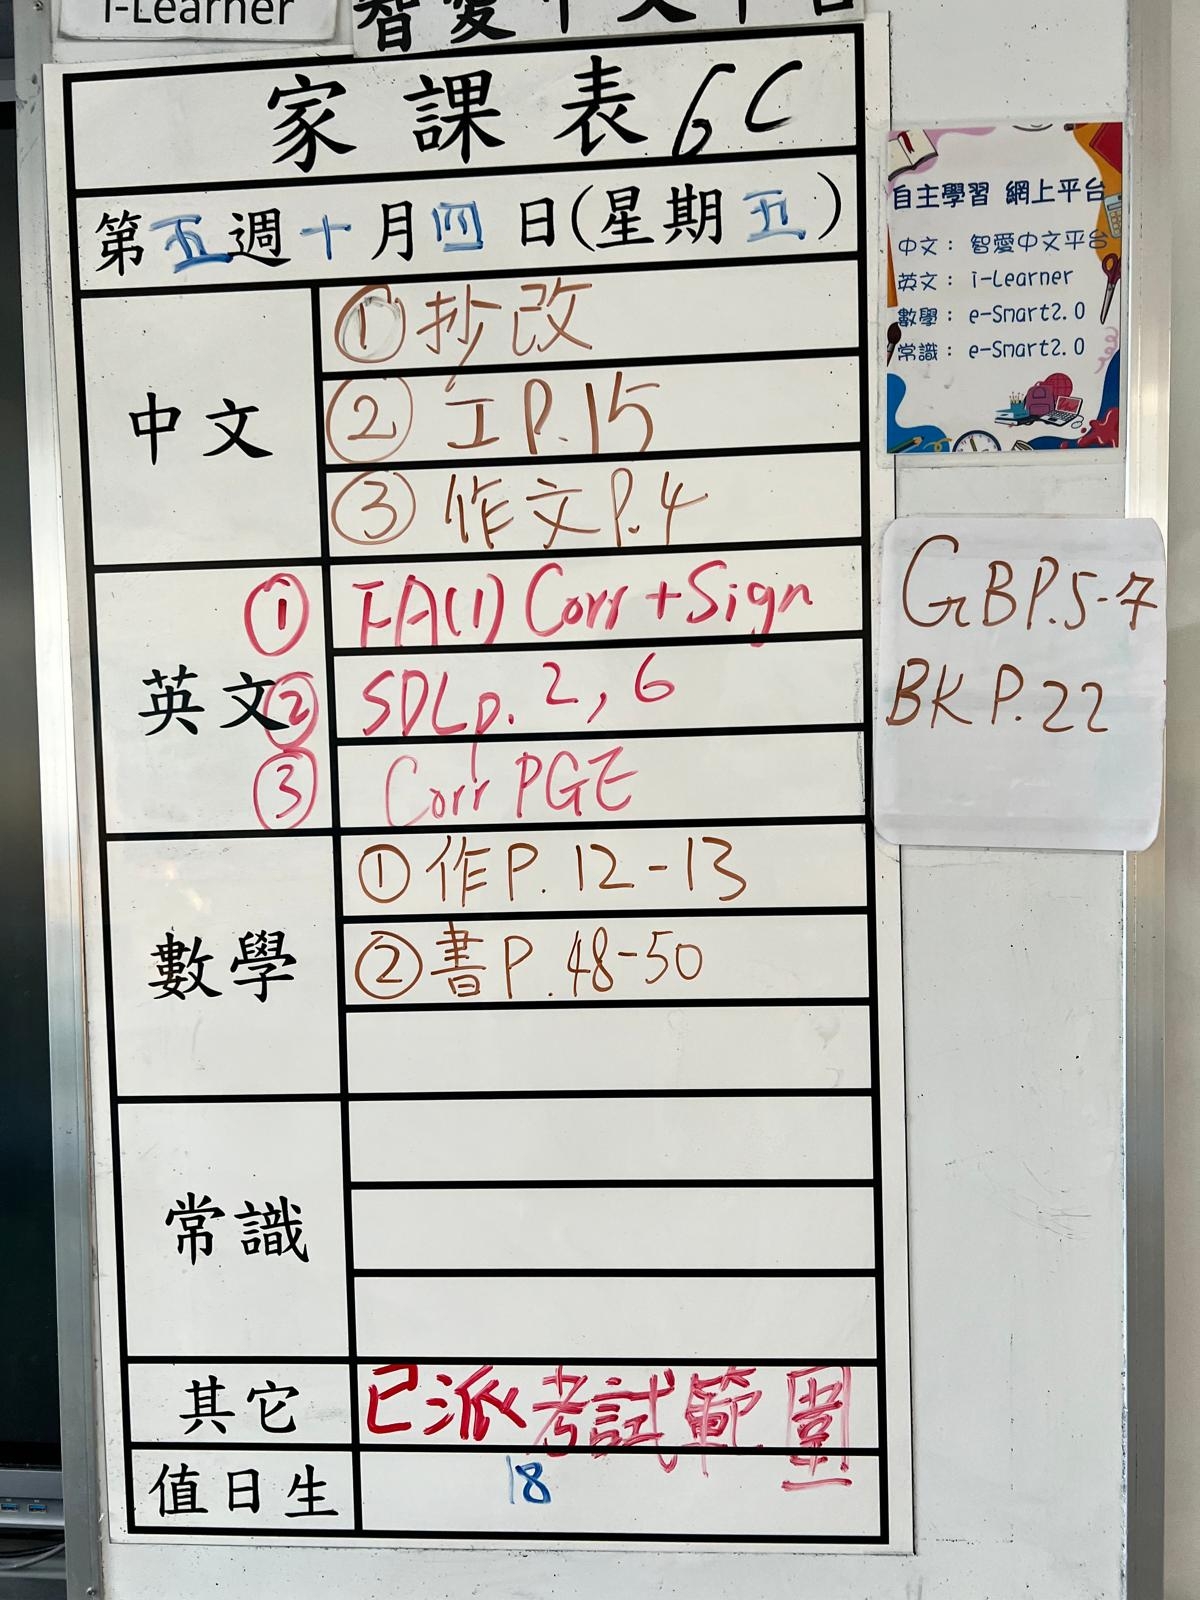 i-Learner
智愛中文平台
家課表 6C
第五週十月四日(星期五)
中文
① 抄改
② 工P.15
③ 作文P.4
英文
① FA(1) Corr + Sign
② SDL p. 2, 6
③ Corr PGE
數學
① 作P. 12-13
② 書P. 48-50
常識
其它
已派考試範圍
值日生
18
自主學習 網上平台
中文： 智愛中文平台
英文： i-Learner
數學： e-Smart2.0
常識： e-Smart2.0
GBP.5-7
BK P.22